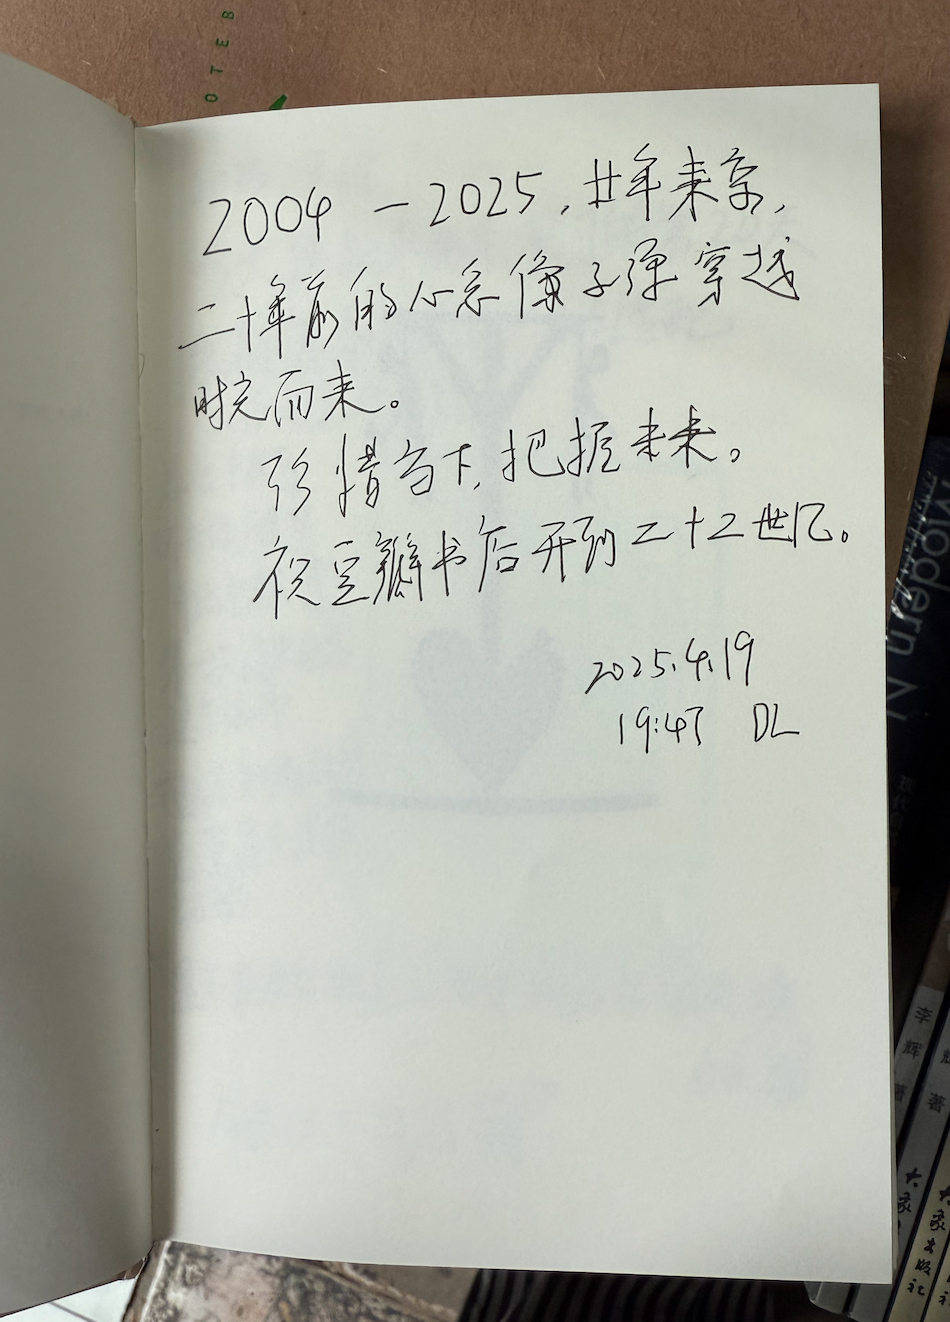 OTEB
2004-2025，廿年来京，
二十年前的心念像子弹穿越
时光而来。
珍惜当下，把握未来。
祝豆瓣书店开到二十二世纪。
2025.4.19
19:47 DL
Modern N
现代
李辉 著
大象
著
大象出版社